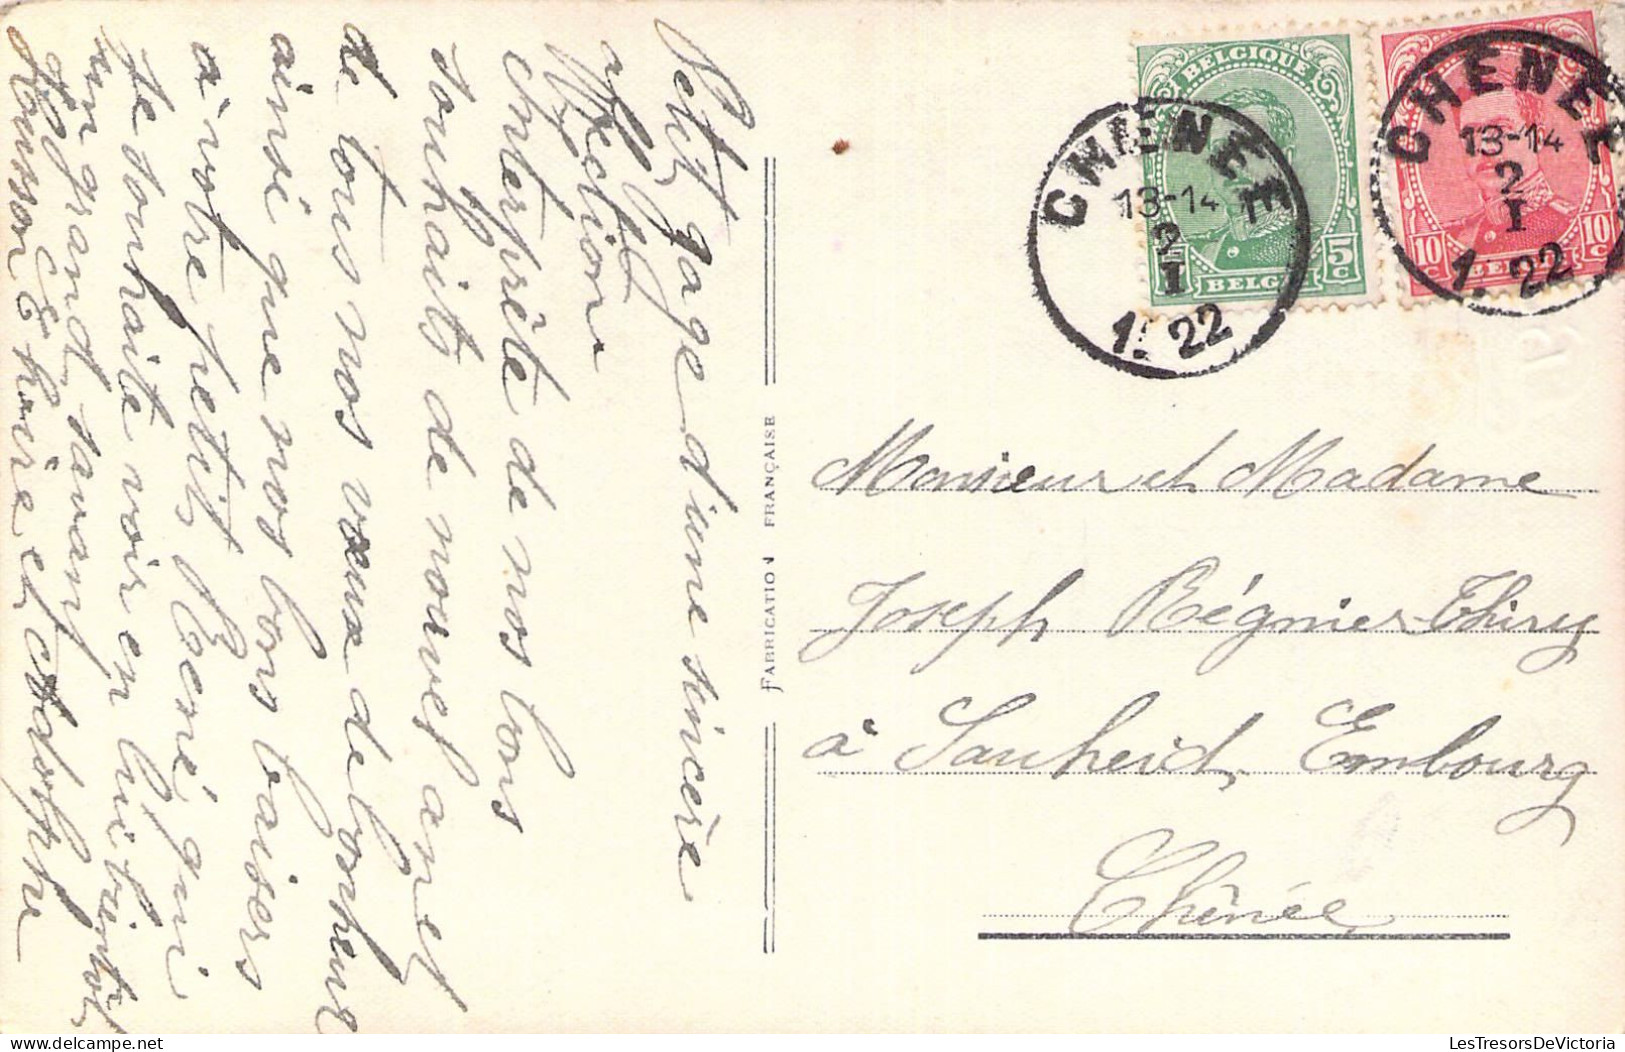 Petit gage d'une sincère
affection
interprète de nos bons
souhaits de nouvel an et
de tous nos vœux de bonheur
ainsi que nos bons baisers
à votre petit René, qui
je souhaite voir en lui bientôt
un grand savant
Monsson Ehoire et Adolphe
FABRICATION FRANÇAISE
BELGIQUE
5 C
BELGIË
CHENEE
13-14
2
I
1. 22
10 C 10 C
BELGIË
CHENEE
13-14
2
I
1. 22
Monsieur et Madame
Joseph Régnier-Thiry
à Sauheid, Embourg
Chênée
LesTresorsDeVictoria.com